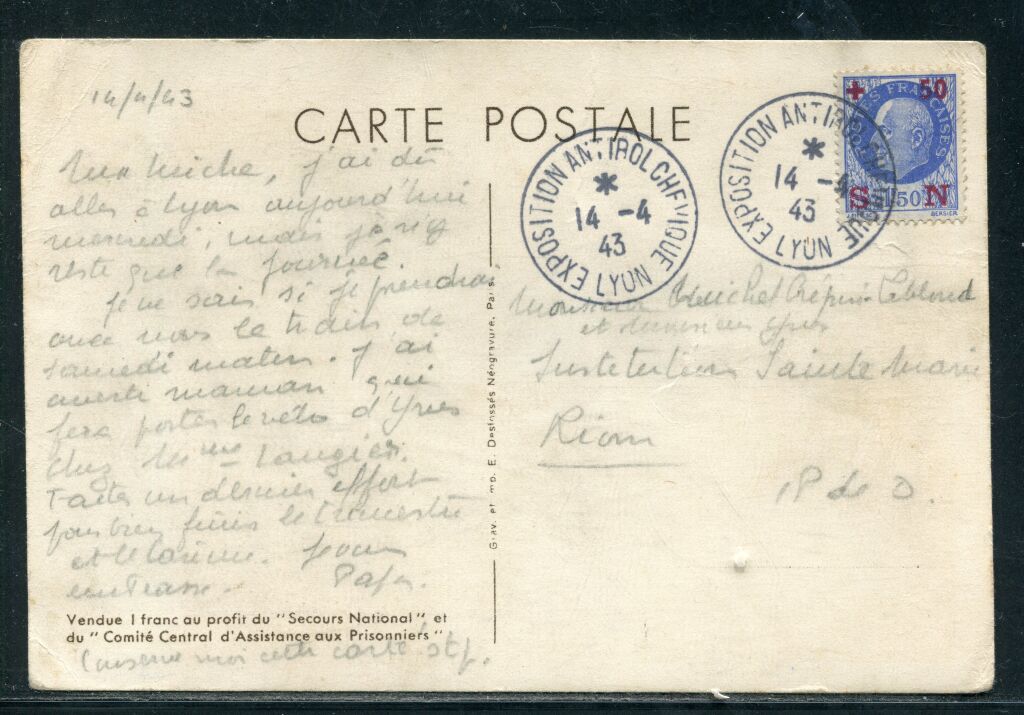 14/4/43
CARTE POSTALE
j'ai dû
aller à Lyon aujourd'hui
mercredi, mais je n'y
reste que la journée.
Je ne sais si je prendrai
avec vous le train de
samedi matin. J'ai
averti maman qui
fera porter le vélo d'Yves
chez Mme Laugier.
Faites un dernier effort
pour bien finir le trimestre
et le carême. Je vous
embrasse. Papa.
Vendue 1 franc au profit du "Secours National" et
du "Comité Central d'Assistance aux Prisonniers"
Conserve moi cette carte stp.
Grav. et imp. E. Desfossés Néogravure, Paris
EXPOSITION ANTIBOLCHEVIQUE
*
14 -4
43
LYON
EXPOSITION ANTIBOLCHEVIQUE
*
14 -4
43
LYON
+ 50
POSTES FRANÇAISES
S 1F50 N
BERSIER
Monsieur Michel
Institution Sainte Marie
Riom
P de D.